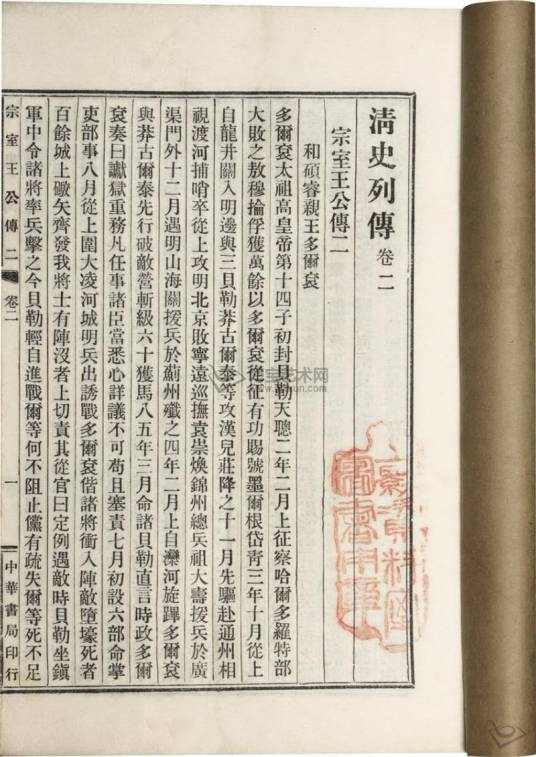 清史列傳 卷二
宗室王公傳二
和碩睿親王多爾袞
多爾袞太祖高皇帝第十四子初封貝勒天聰二年二月上征察哈爾多羅特部
大敗之敖穆掄俘獲萬餘以多爾袞從征有功賜號墨爾根岱青三年十月從上
自龍井關入明邊與三貝勒莽古爾泰等攻漢兒莊降之十一月先驅赴通州相
視渡河捕哨卒從上攻明北京敗寧遠巡撫袁崇煥錦州總兵祖大壽援兵於廣
渠門外十二月遇明山海關援兵於薊州殲之四年二月上自灤河旋蹕多爾袞
與莽古爾泰先行破敵營斬級六十獲馬八五年三月命諸貝勒直言時政多爾
袞奏曰讞獄重務凡任事諸臣當悉心詳議不可苟且塞責七月初設六部命掌
吏部事八月從上圍大凌河城明兵出誘戰多爾袞偕諸將衝入陣敵墮壕死者
百餘城上礮矢齊發我將士有陣沒者上切責其從官曰定例遇敵時貝勒坐鎮
軍中令諸將率兵擊之今貝勒輕自進戰爾等何不阻止儻有疏失爾等死不足
宗室王公傳二 卷二 一 中華書局印行